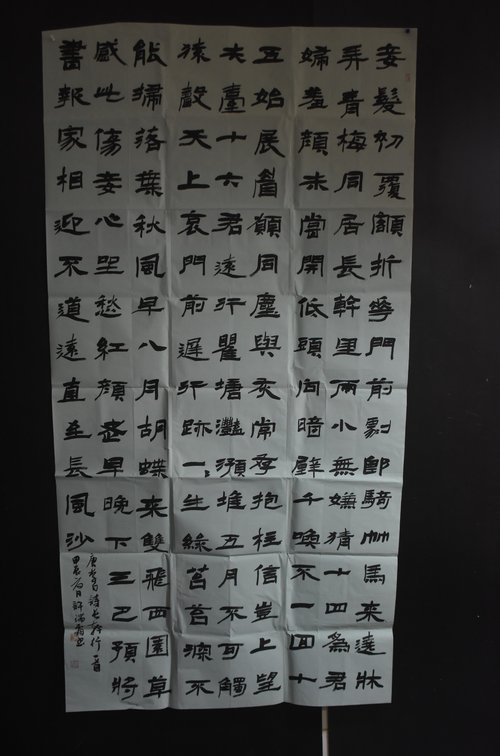 妾髮初覆額折花門前劇郎騎竹馬來遶牀
弄青梅同居長幹里兩小無嫌猜十四為君
婦羞顏未嘗開低頭向暗壁千喚不一回十
五始展眉願同塵與灰常存抱柱信豈上望
夫臺十六君遠行瞿塘灩澦堆五月不可觸
猿聲天上哀門前遲行跡一一生綠苔苔深不
能掃落葉秋風早八月胡蝶來雙飛西園草
感此傷妾心坐愁紅顏老早晚下三巴預將
書報家相迎不道遠直至長風沙
唐李白詩長幹行一首
甲辰月書